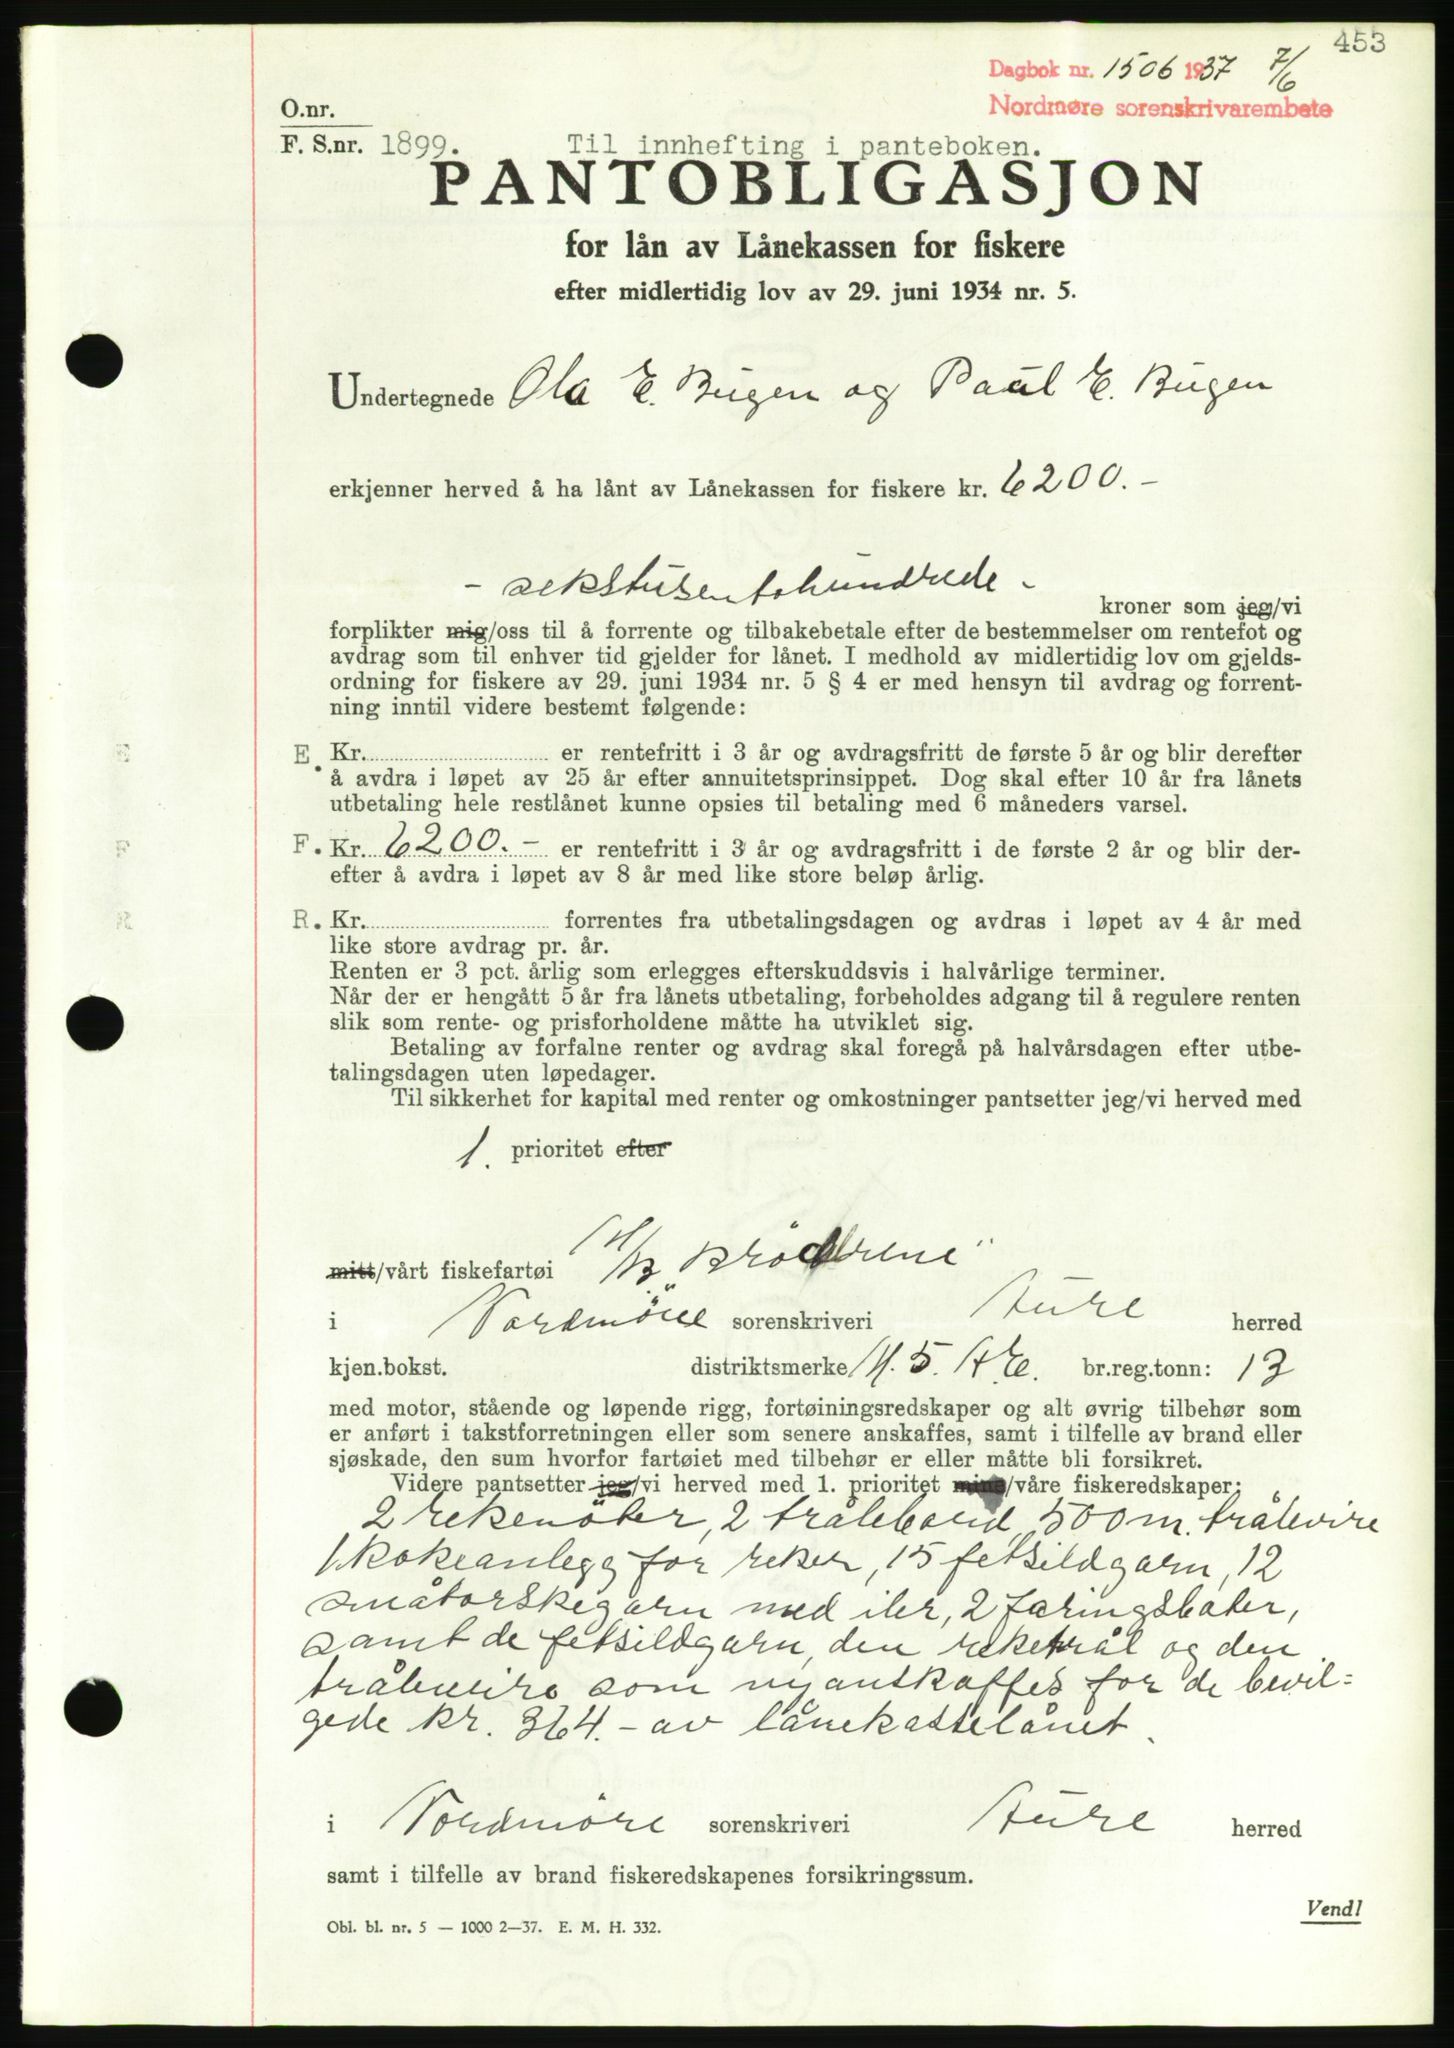 453
Dagbok nr. 1506 1937 7/6
Nordmøre sorenskrivarembete
O.nr.
F. S.nr. 1899. Til innhefting i panteboken.
PANTOBLIGASJON
for lån av Lånekassen for fiskere
efter midlertidig lov av 29. juni 1934 nr. 5.
Undertegnede Ola E. Bugen og Paul E. Bugen
erkjenner herved å ha lånt av Lånekassen for fiskere kr. 6200.-
- sekstusentohundrede -
kroner som jeg/vi
forplikter mig/oss til å forrente og tilbakebetale efter de bestemmelser om rentefot og
avdrag som til enhver tid gjelder for lånet. I medhold av midlertidig lov om gjelds-
ordning for fiskere av 29. juni 1934 nr. 5 § 4 er med hensyn til avdrag og forrent-
ning inntil videre bestemt følgende:
E. Kr. er rentefritt i 3 år og avdragsfritt de første 5 år og blir derefter
å avdra i løpet av 25 år efter annuitetsprinsippet. Dog skal efter 10 år fra lånets
utbetaling hele restlånet kunne opsies til betaling med 6 måneders varsel.
F. Kr. 6200.- er rentefritt i 3 år og avdragsfritt i de første 2 år og blir der-
efter å avdra i løpet av 8 år med like store beløp årlig.
R. Kr. forrentes fra utbetalingsdagen og avdras i løpet av 4 år med
like store avdrag pr. år.
Renten er 3 pct. årlig som erlegges efterskuddsvis i halvårlige terminer.
Når der er hengått 5 år fra lånets utbetaling, forbeholdes adgang til å regulere renten
slik som rente- og prisforholdene måtte ha utviklet sig.
Betaling av forfalne renter og avdrag skal foregå på halvårsdagen efter utbe-
talingsdagen uten løpedager.
Til sikkerhet for kapital med renter og omkostninger pantsetter jeg/vi herved med
1. prioritet efter
mitt/vårt fiskefartøi M/B "Brödrene"
i Nordmöre sorenskriveri Aure herred
kjen.bokst. distriktsmerke M. 5. A.E. br.reg.tonn: 13
med motor, stående og løpende rigg, fortøiningsredskaper og alt øvrig tilbehør som
er anført i takstforretningen eller som senere anskaffes, samt i tilfelle av brand eller
sjøskade, den sum hvorfor fartøiet med tilbehør er eller måtte bli forsikret.
Videre pantsetter jeg/vi herved med 1. prioritet mine/våre fiskeredskaper:
2 rekenöter, 2 trålebord, 500 m. trålevire
1 kokeanlegg for reker, 15 fetsildgarn, 12
småtorskegarn med iler, 2 færingsbåter,
samt de fetsildgarn, den reketrål og den
trålevire som nyanskaffes for de bevil=
gede kr. 364.- av lånekasselånet.
i Nordmöre sorenskriveri Aure herred
samt i tilfelle av brand fiskeredskapenes forsikringssum.
Vend!
Obl. bl. nr. 5 — 1000 2—37. E. M. H. 332.